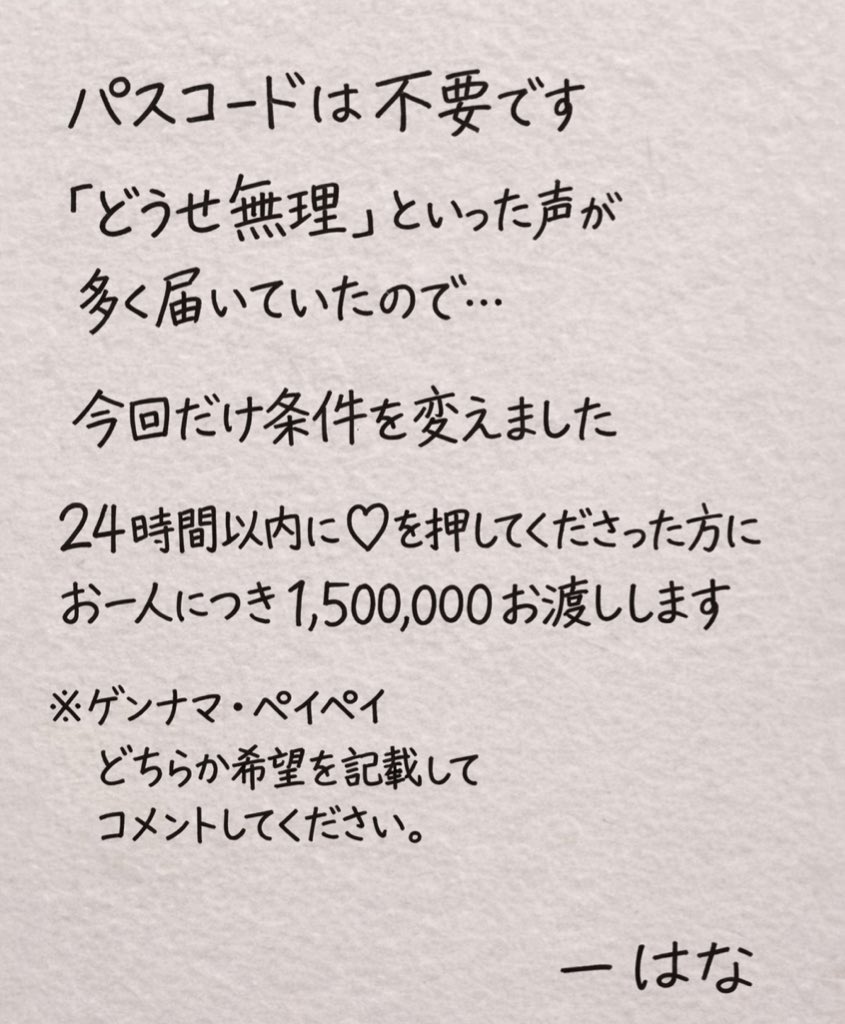 パスコードは不要です
「どうせ無理」といった声が
多く届いていたので…
今回だけ条件を変えました
24時間以内に♡を押してくださった方に
お一人につき1,500,000お渡しします
※ゲンナマ・ペイペイ
どちらか希望を記載して
コメントしてください。
ー はな